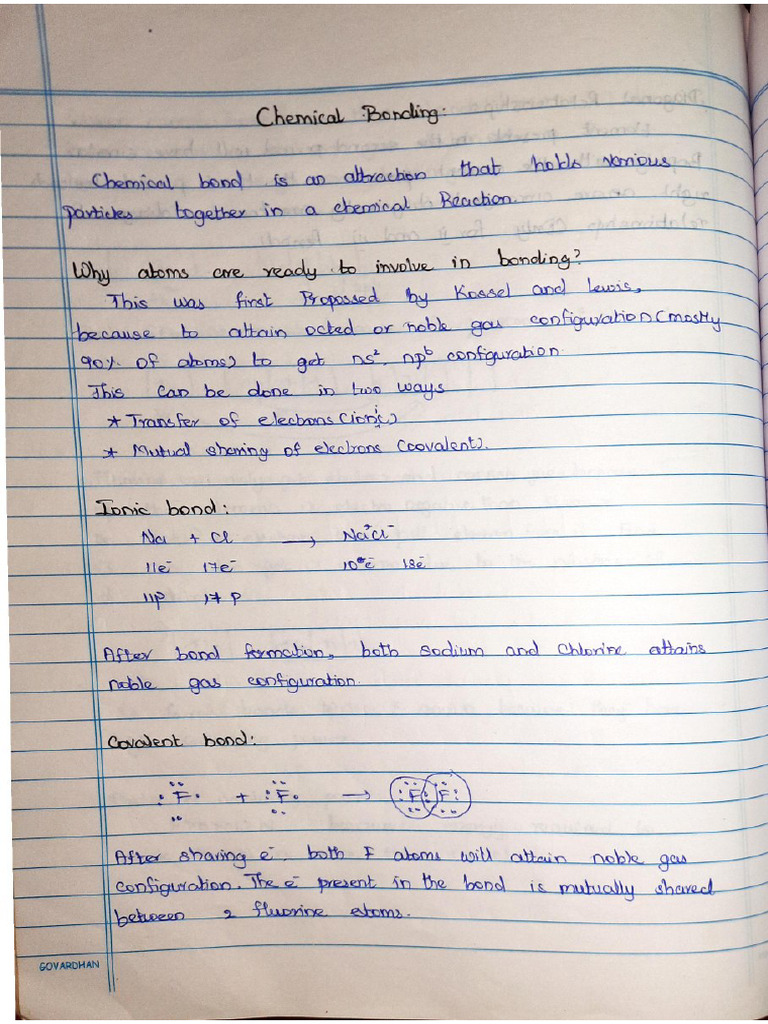 Chemical Bonding:
Chemical bond is an attraction that holds various
particles together in a chemical Reaction.
Why atoms are ready to involve in bonding?
This was first Propossed by Kossel and Lewis,
because to attain octed or noble gas configuration (mostly
90% of atoms) to get ns², np⁶ configuration.
This can be done in two ways
* Transfer of electrons (ionic)
* Mutual sharing of electrons (covalent).
Ionic bond:
Na + Cl → Na⁺Cl⁻
11e⁻ 17e⁻ 10e⁻ 18e⁻
11p 17p
After bond formation, both Sodium and Chlorine attains
noble gas configuration.
Covalent bond:
F + F → F F
After sharing e⁻, both F atoms will attain noble gas
configuration. The e⁻ present in the bond is mutually shared
between 2 fluorine atoms.
GOVARDHAN